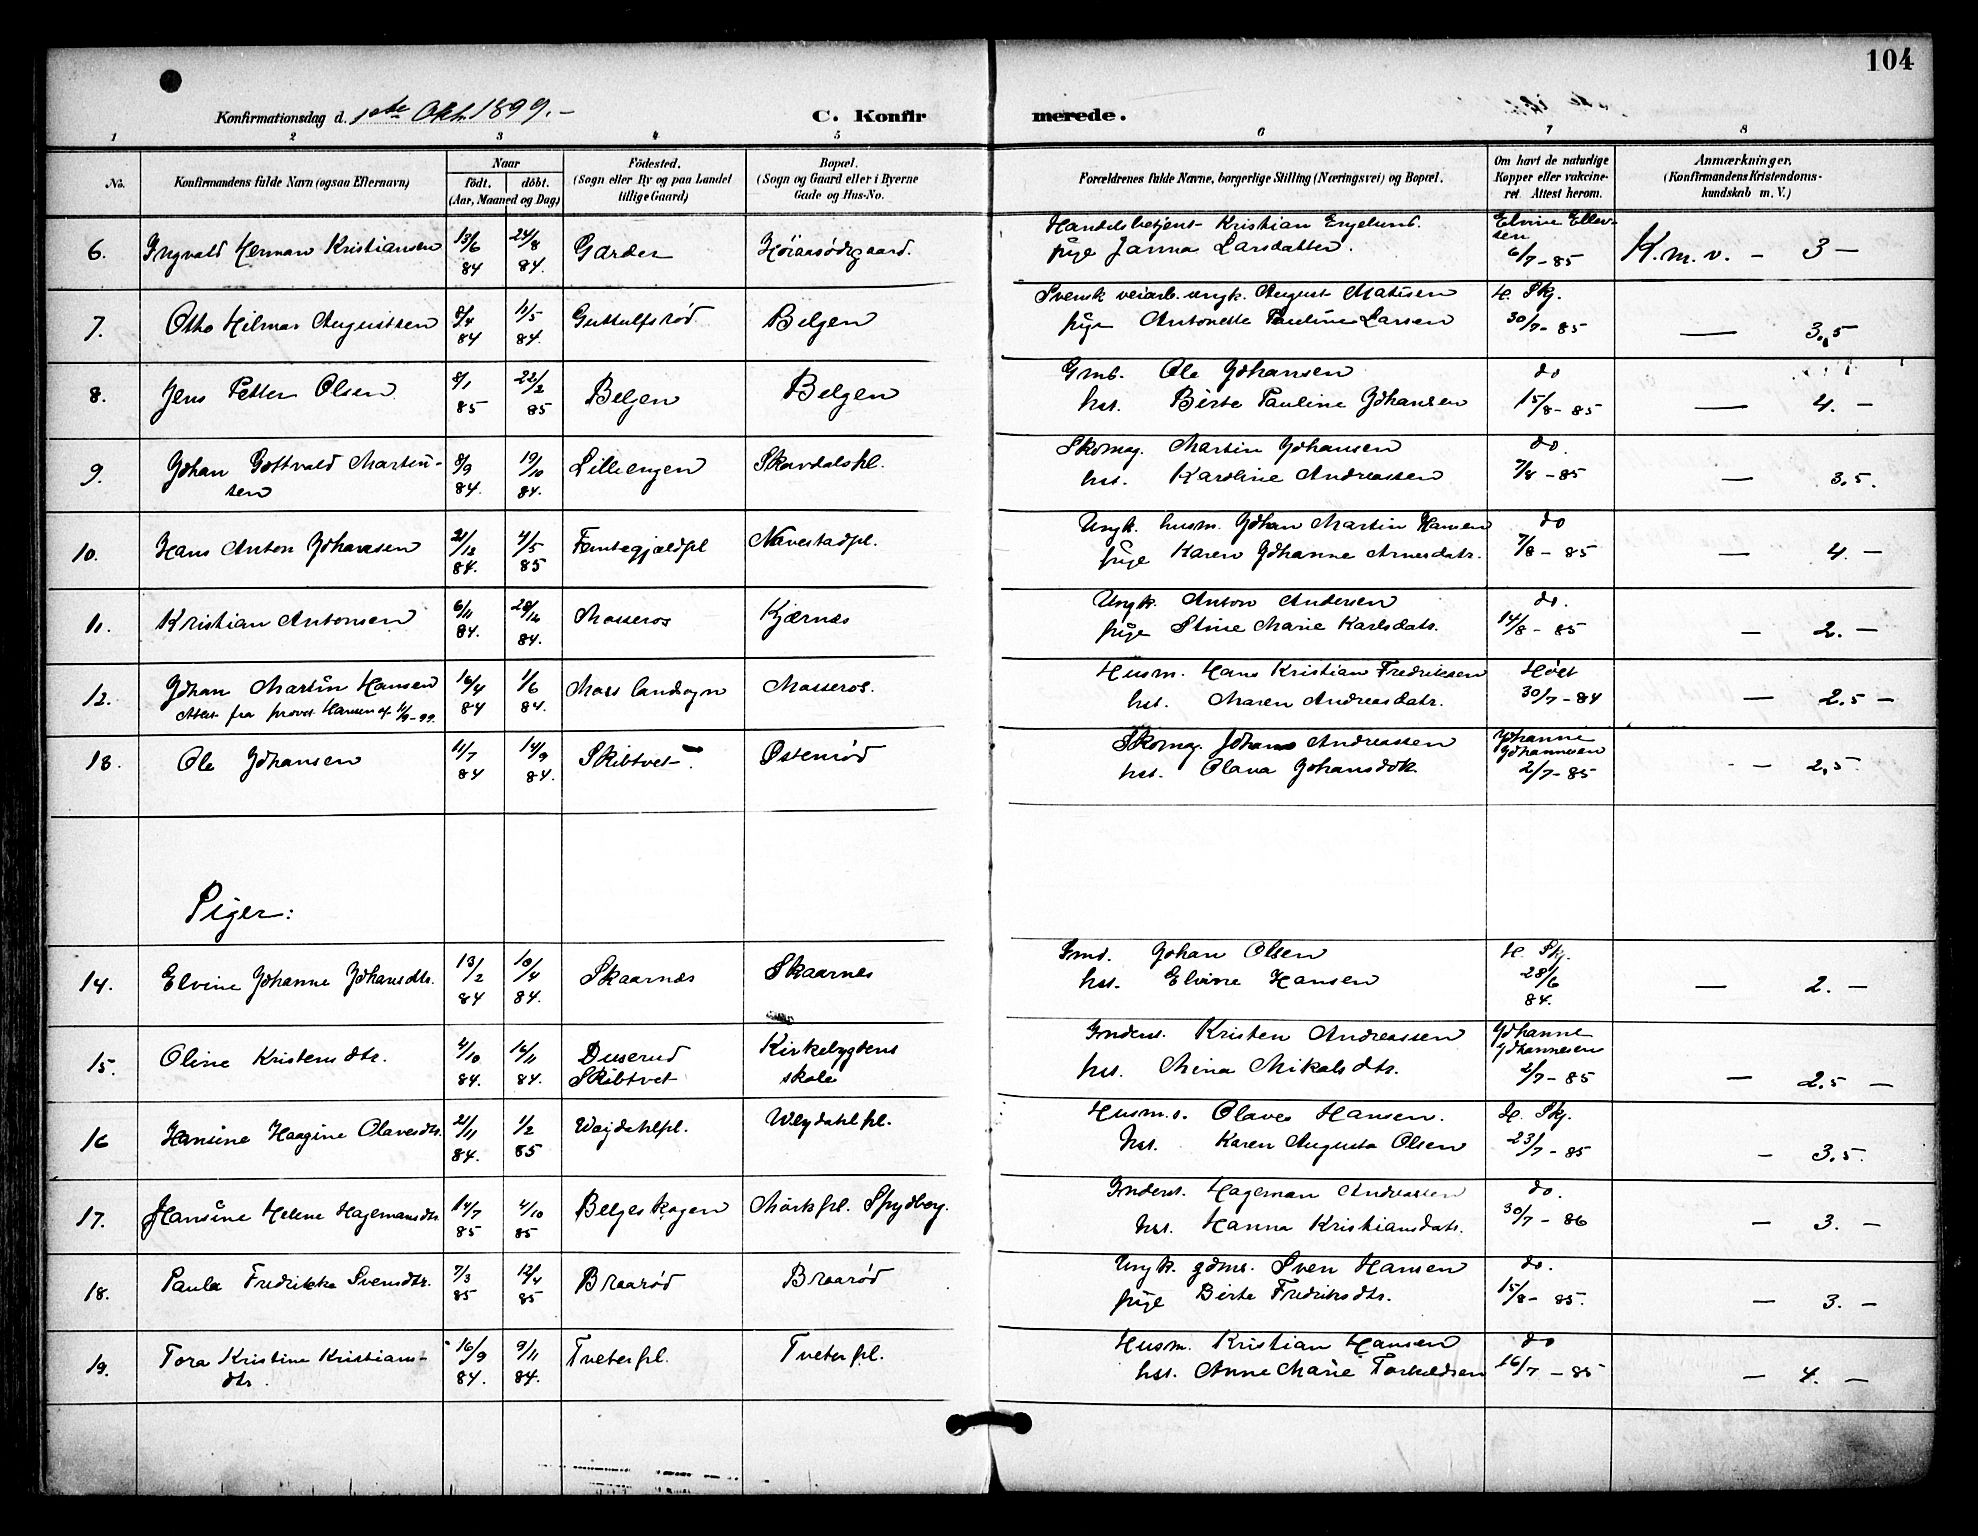 104
Konfirmationsdag d. 1ste Okt. 1899.- C. Konfirmerede.
1 2 3 4 5 6 7 8
No. Konfirmandens fulde Navn (ogsaa Efternavn) Naar födt. döbt. (Aar, Maaned og Dag) Födested. (Sogn eller By og paa Landet tillige Gaard) Bopæl. (Sogn og Gaard eller i Byerne Gade og Hus-No. Forældrenes fulde Navne, borgerlige Stilling (Næringsvei) og Bopæl. Om havt de naturlige Kopper eller vakcineret. Attest herom. Anmærkninger. (Konfirmandens Kristendomskundskab m. V.)
6. Ingvald Herman Kristiansen 13/6 84 24/8 84. Garder Høiaasødegaard. Handelsbetjent Kristian Engelund. Elvine Ellevsen
pige Janna Larsdatter. 6/7-85 K.m.v. - 3 -
7. Otto Hilmar Augustsen 8/4 84 11/5 84. Guttulfsrød Belgen Svensk veiarb. ungk. August Matisen H. Skj.
pige Antonette Pauline Larsen 30/7-85 — 3,5
8. Jens Petter Olsen 8/1 85 22/2 85 Belgen Belgen Gmb. Ole Johansen do
hst. Birte Pauline Johansen 15/8-85 — 4. -
9. Johan Gottvald Martinsen 8/9 84. 19/10 84. Lilleengen Skovdalspl. Skomag. Martin Johansen do.
hst. Karoline Andreassen 7/8-85 — 3,5.
10. Hans Anton Johansen 21/12 84. 4/5 85 Fantegjældpl Navestadpl. Ungk. husm. Johan Martin Hansen do
pige Karen Johanne Arnesdatr. 7/8-85 — 4. -
11. Kristian Antonsen 6/11 84. 28/12 84. Mosseros Kjærnes Ungk. Anton Andersen do.
pige Stine Marie Karlsdatr. 14/8-85 — 2. -
12. Johan Martin Hansen 16/4 84 1/6 84. Moss landsogn Mosseros. Husm. Hans Kristian Fredriksen Høet
Attest fra provst Hansen af 11/9-99. hst. Maren Andreasdatr. 30/7-84 — 2,5 -
13. Ole Johansen 11/7 84 14/9 84. Skibtvet Østenrød Skomag. Johans Andreassen Johanne Johannesen
hst. Olava Johansdatr. 2/7-85 - 2,5.
Piger:
14. Elvine Johanne Johansdtr. 13/2 84 10/4 84. Skaarnes Skaarnes Gmd. Johan Olsen H. Skj.
hst. Elvine Hansen 28/6 84. — 2. -
15. Oline Kristensdtr. 4/10 84. 16/11 84. Duserud Skibtvet Kirkebygdens skole Inderst. Kristen Andreassen Johanne Johannesen
hst. Mina Mikalsdtr. 2/7-85 — 2,5 -
16 Hansine Haagine Olavesdtr. 21/11 84. 1/2 85 Vejdahlpl. Vejdahlpl. Husm.s. Olaves Hansen. H. Skj.
hst. Karen Augusta Olsen 23/7-85 - 3,5.
17. Hansine Helene Hagemansdtr. 14/7 85 4/10 85 Belgeskogen Mørkpl. Spydberg. Inderst. Hageman Andreassen do.
hst. Hanna Kristiansdatr. 30/7-86 — 3. -
18. Paula Fredrikke Svensdtr. 7/3 85 12/4 85 Braarød Braarød Ungk. gdms. Sven Hansen do.
pige Birte Fredriksdtr. 15/8-85. — 3. -
19. Tora Kristine Kristiansdtr. 16/9 84. 9/11 84. Tveterpl. Tveterpl. Husm. Kristian Hansen do
hst. Anne Marie Torkildsen 16/7-85 — 4. -